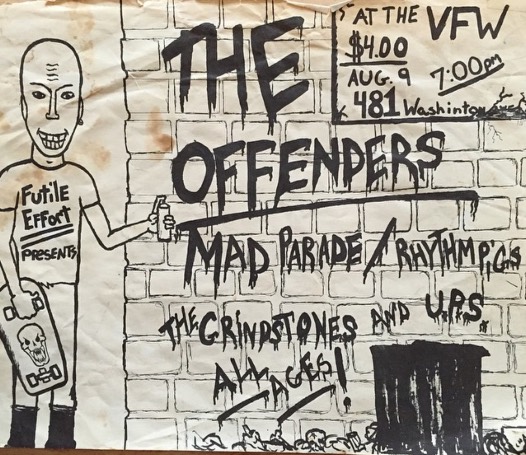 AT THE VFW
$4.00
AUG. 9 7:00pm
481 Washinton
THE
OFFENDERS
Futile
Effort
PRESENTS
MAD PARADE / RHYTHM PIGS
THE GRINDSTONES AND U.P.S.
ALL AGES!